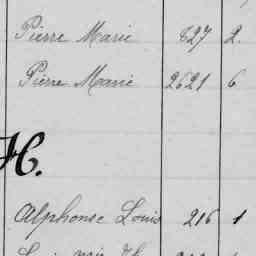 Pierre Marie 827 2.
Pierre Marie 2621 6
H.
Alphonse Louis 216 1